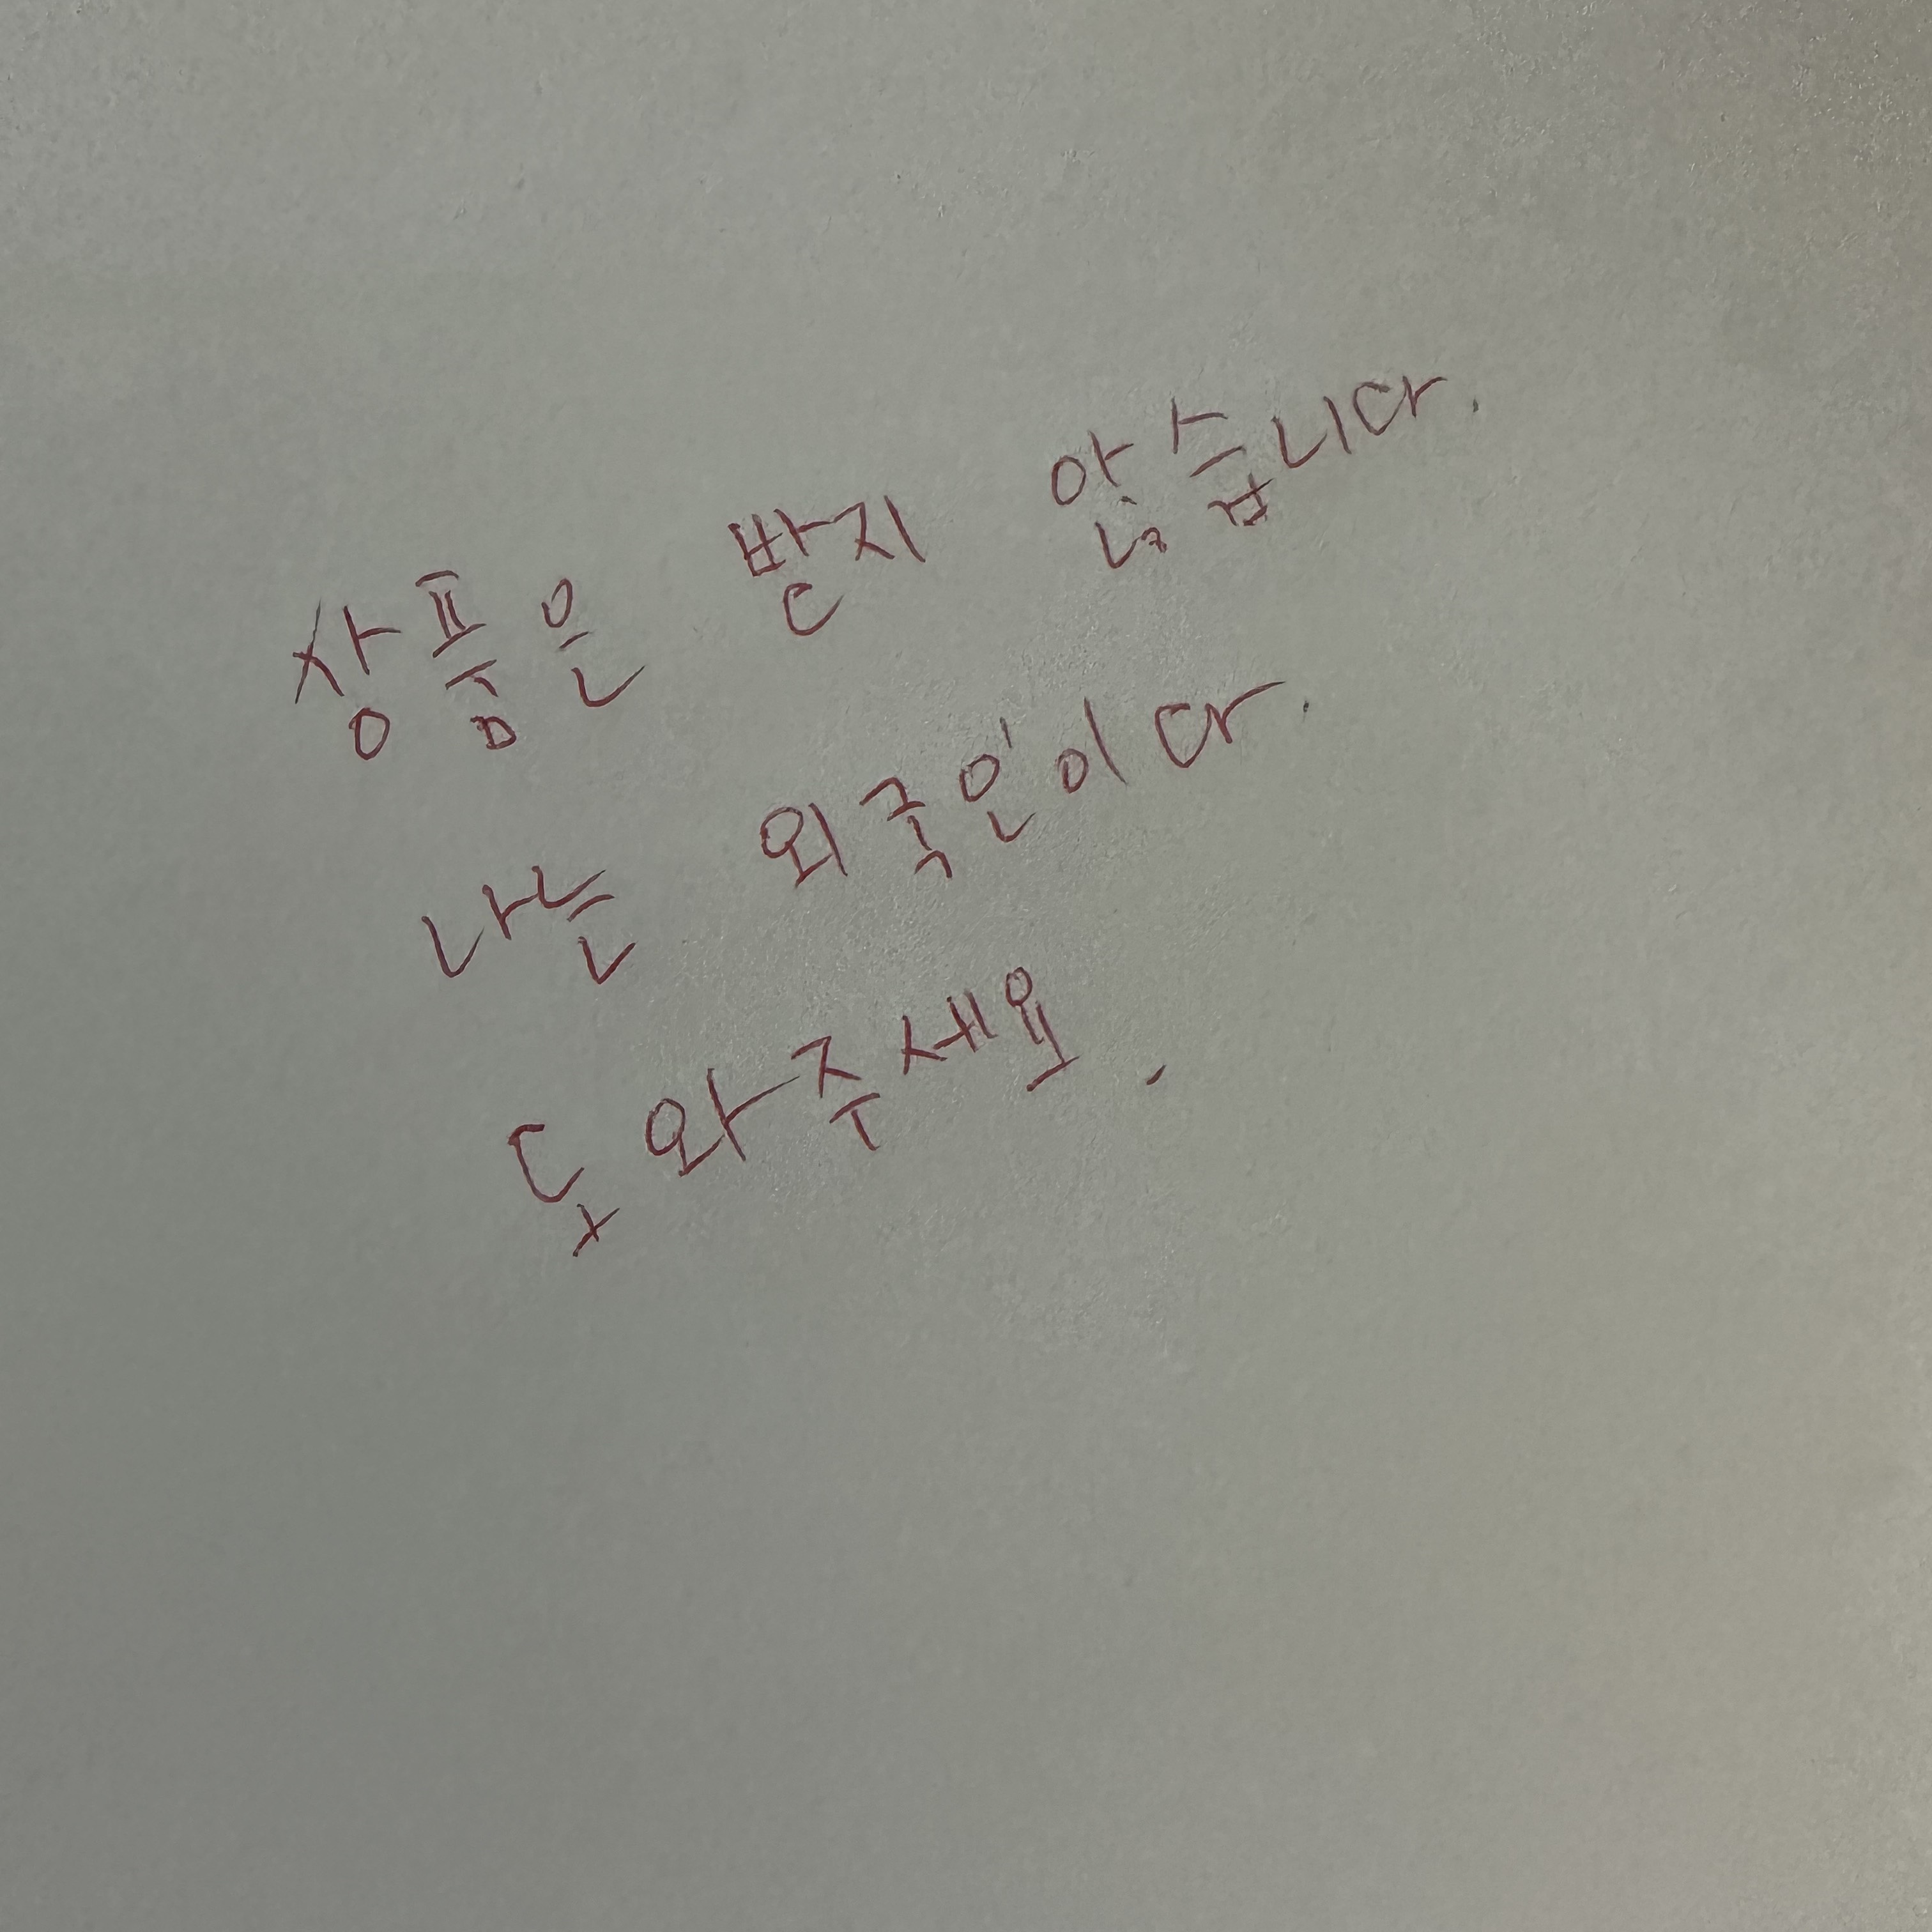 상품은 받지 않습니다.
나는 외국인이다.
도와주세요.